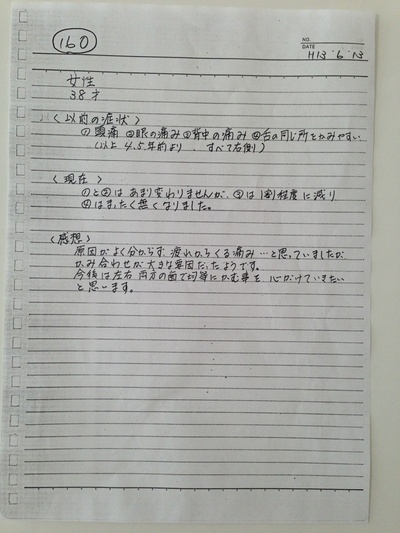 160
NO.
DATE H13・6・13
女性
38才
〈以前の症状〉
①頭痛 ②眼の痛み ③背中の痛み ④舌の同じ所をかみやすい
(以上 4.5年前より、すべて右側)
〈現在〉
①と②は あまり変わりませんが、③は1割程度に減り
④はまったく無くなりました。
〈感想〉
原因がよく分からず 疲れからくる痛み…と思っていましたが
かみ合わせが大きな要因だったようです。
今後は左右両方の歯で均等にかむ事を 心がけていきたい
と思います。